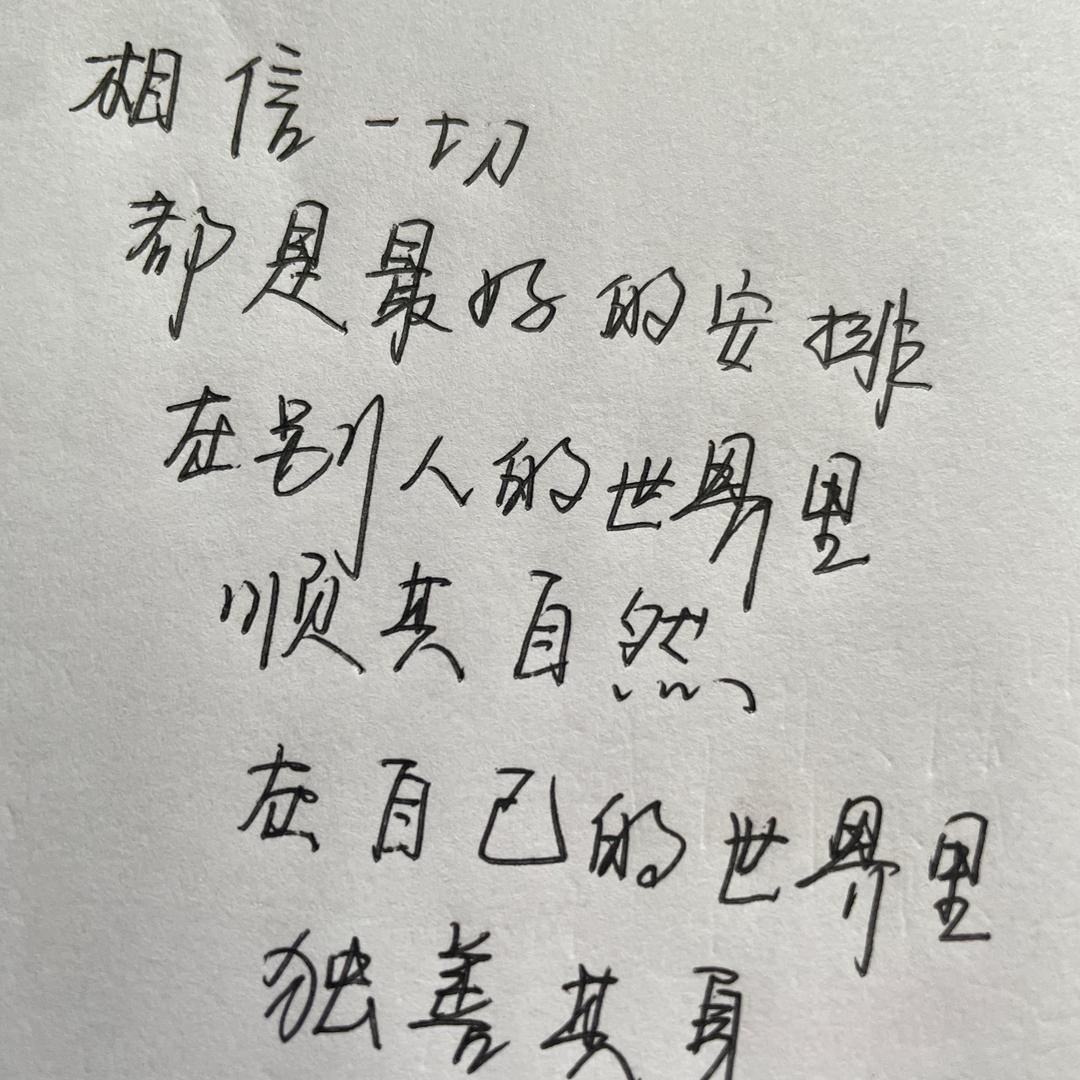 相信一切
都是最好的安排
在别人的世界里
顺其自然
在自己的世界里
独善其身